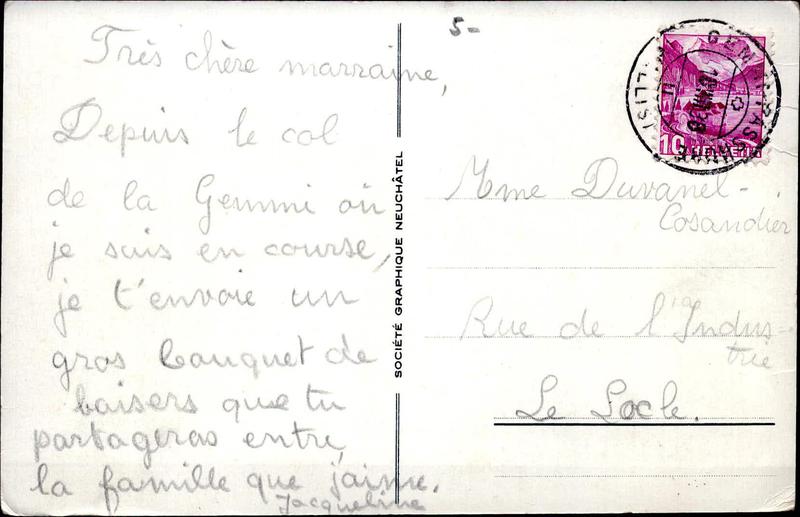 5-
Très chère marraine,
Depuis le col
de la Gemmi où
je suis en course,
je t'envoie un
gros bouquet de
baisers que tu
partageras entre
la famille que j'aime.
Jacqueline
SOCIÉTÉ GRAPHIQUE NEUCHÂTEL
10 HELVETIA
Mme Duvanel-
Cosandier
Rue de l'Indus-
trie
Le Locle.